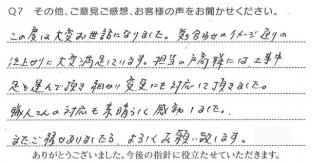 Q7 その他、ご意見ご感想、お客様の声をお聞かせください。
この度は大変お世話になりました。気分合わせのイメージ通りの
仕上がりに大変満足しています。担当の戸高様には工事中
足を運んで頂き細かい変更にも対応して頂きました。
職人さんの対応も素晴らしく感動しました。
またご縁がありましたら、よろしくお願い致します。
ありがとうございました。今後の指針に役立たせていただきます。